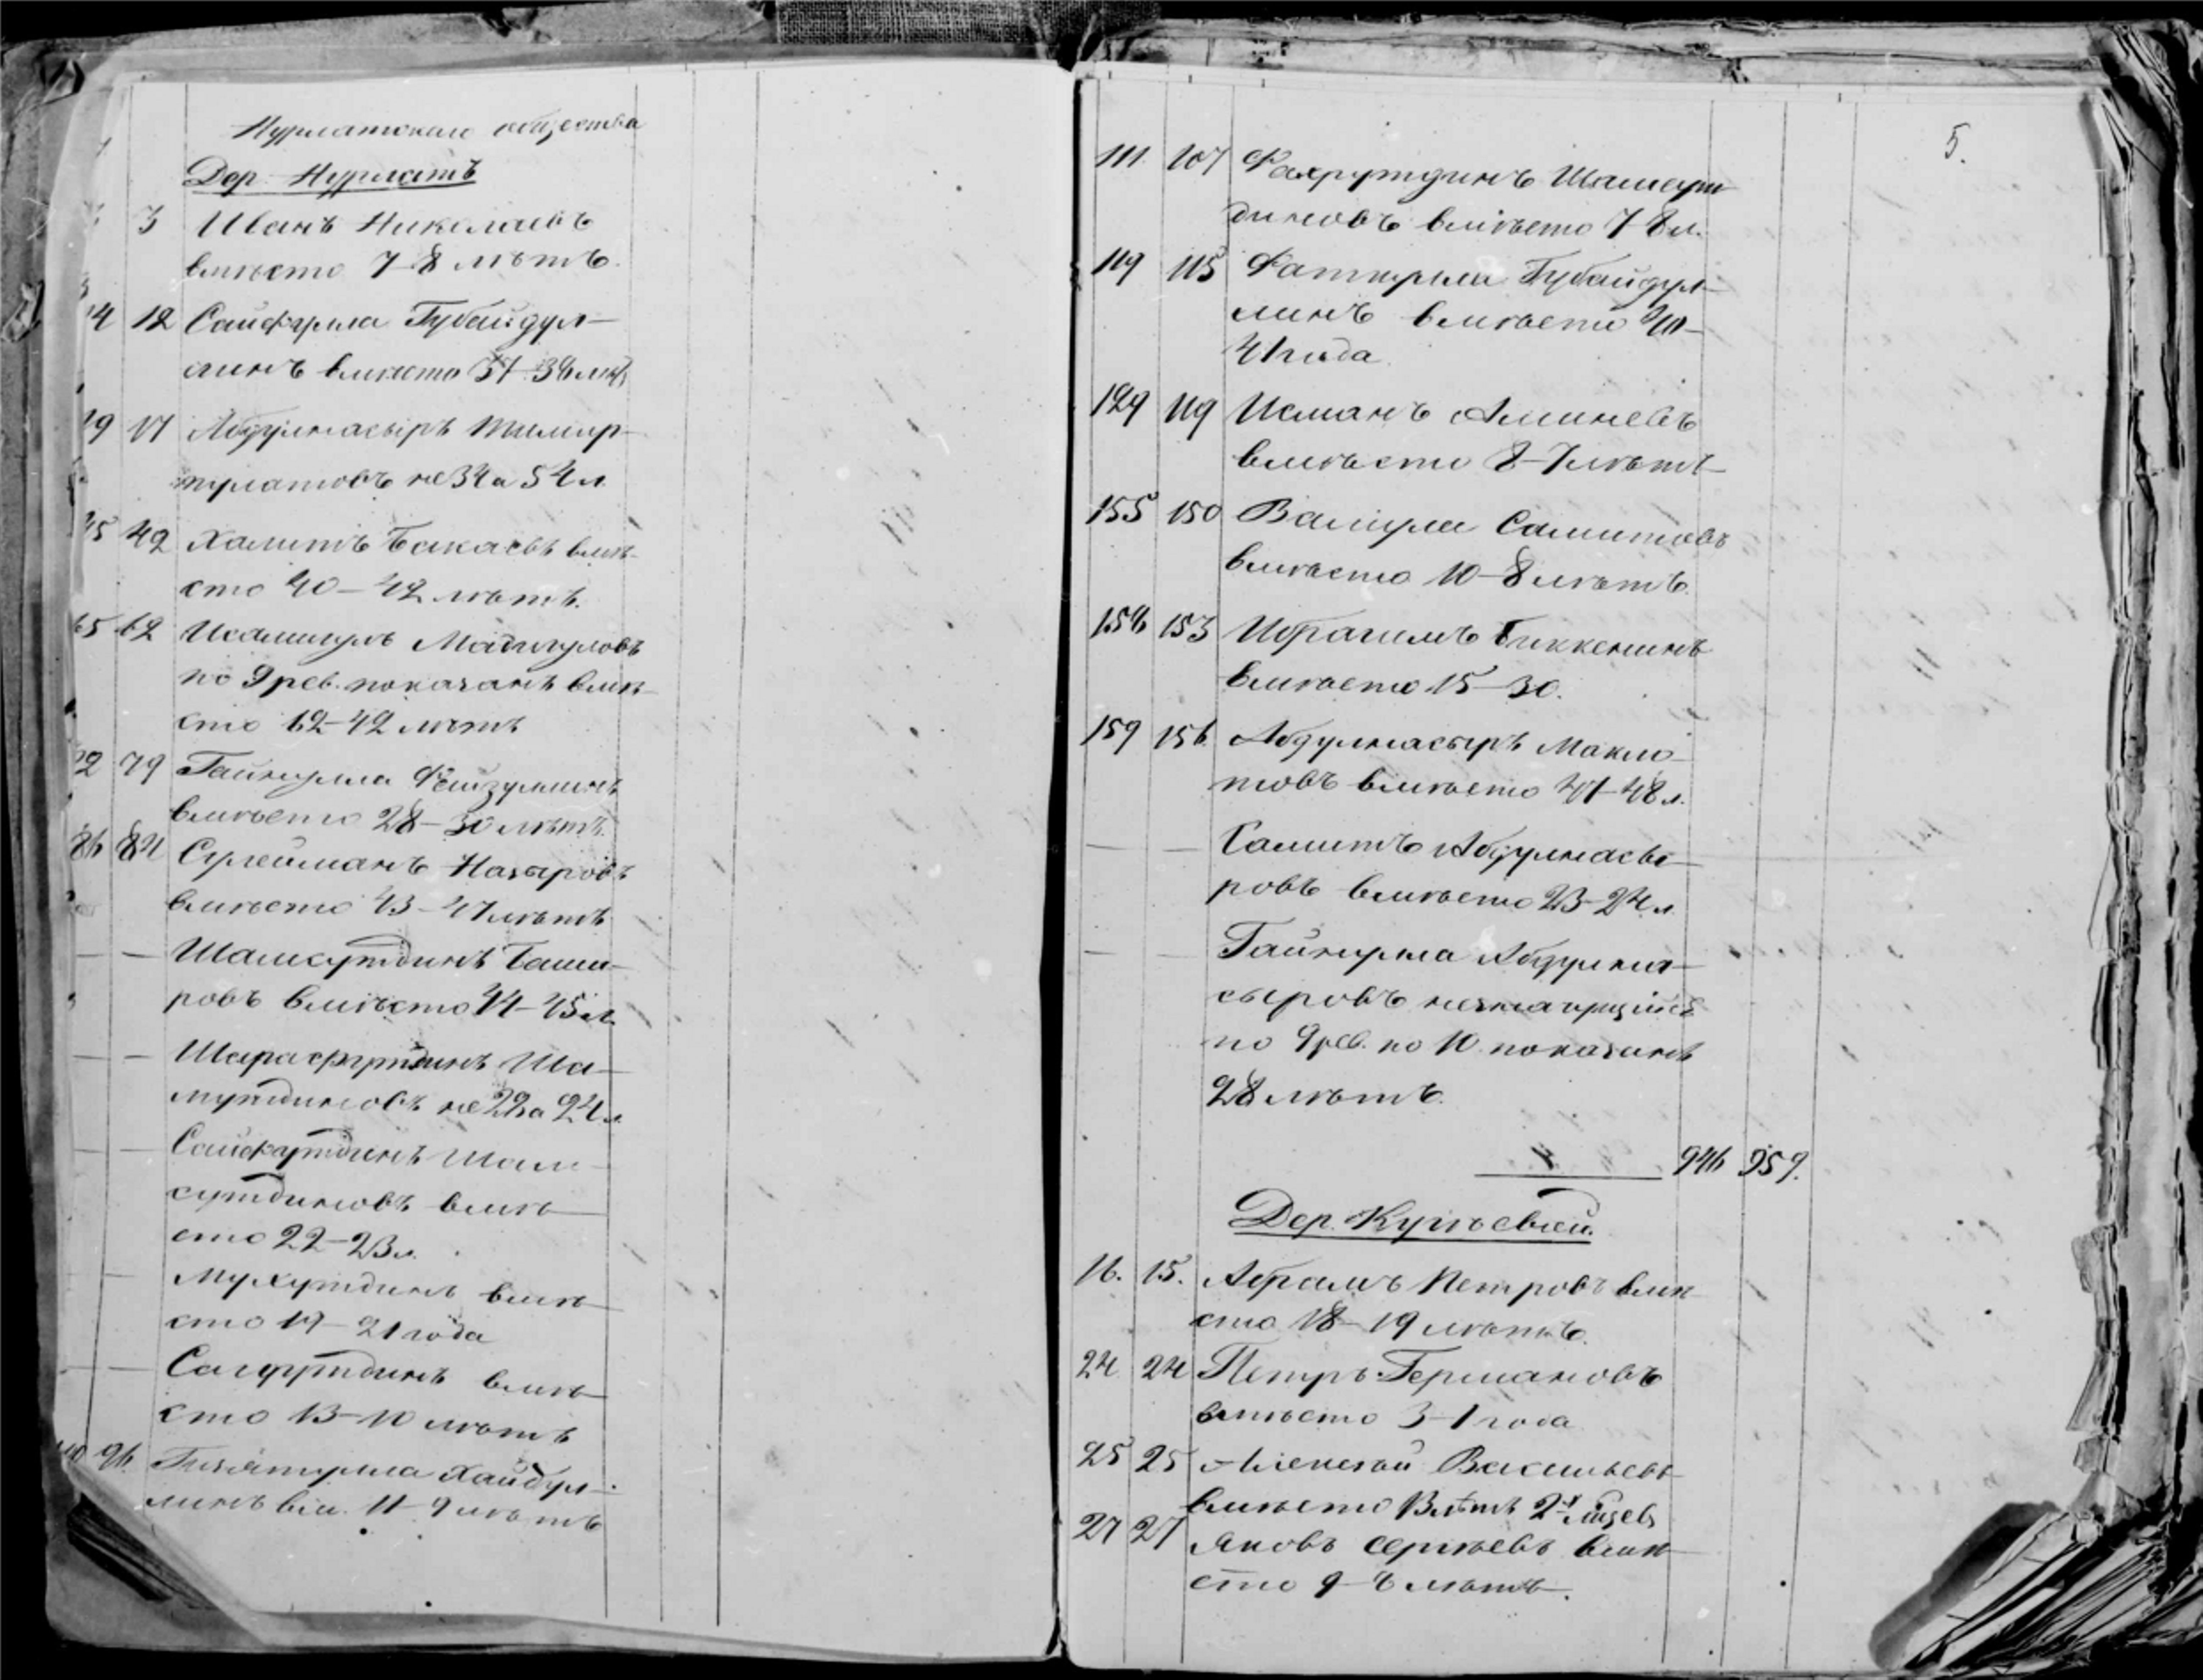 Нурлатскаго общества
Дер. Нурлатъ
3 Иванъ Николаевъ
вмѣсто 7-8 лѣтъ.
14 12 Сайфулла Губайдул-
линъ вмѣсто
19 17 Абдулнасыръ Тимир-
пулатовъ не 34 а 54 л.
45 42 Халитъ Бакаевъ вмѣ-
сто 40-42 лѣтъ.
65 62 Исамгулъ
по 9 рев. показанъ вмѣ-
сто 12-42 лѣтъ
79 Гайнулла Фейзуллинъ
вмѣсто 28-30 лѣтъ.
86 84 Сулейманъ Назыровъ
вмѣсто 43-47 лѣтъ
— — Шамсутдинъ Баши-
ровъ вмѣсто 44-45 л.
— — Шарафутдинъ Ша-
мутдиновъ не 22 а 24 л.
— — Сайфутдинъ Шам-
сутдиновъ вмѣ-
сто 22-23 л.
— Мухутдинъ вмѣ-
сто 19-21 года
— — Сагутдинъ вмѣ-
сто 13-10 лѣтъ
96 Гизятулла Хайбул-
линъ вм. 11-9 лѣтъ
5.
111 107 Фахрутдинъ Шамсут-
диновъ вмѣсто 7-8 л.
119 115 Фаткулла Губайдул-
линъ вмѣсто 40-
41 года
129 119 Исманъ Аминевъ
вмѣсто 8-7 лѣтъ
155 150 Валиулла Самитовъ
вмѣсто 10-8 лѣтъ.
156 153 Ибрагимъ Биккенинъ
вмѣсто 15-30.
159 156 Абдулнасыръ Макма-
товъ вмѣсто 47-48 л.
— — Самитъ Абдулнасы-
ровъ вмѣсто 23-24 л.
— — Гайнулла Абдулна-
сыровъ незначущійся
по 9 рев. по 10 показанъ
28 лѣтъ.
946 959.
Дер. Кульбевой.
16. 15. Абрамъ Петровъ вмѣ-
сто 18-19 лѣтъ.
24 24 Петръ Германовъ
вмѣсто 3-1 года
25 25 Алексѣй Васильевъ
вмѣсто
27 27 Яковъ Сергѣевъ вмѣ-
сто 9-8 лѣтъ.